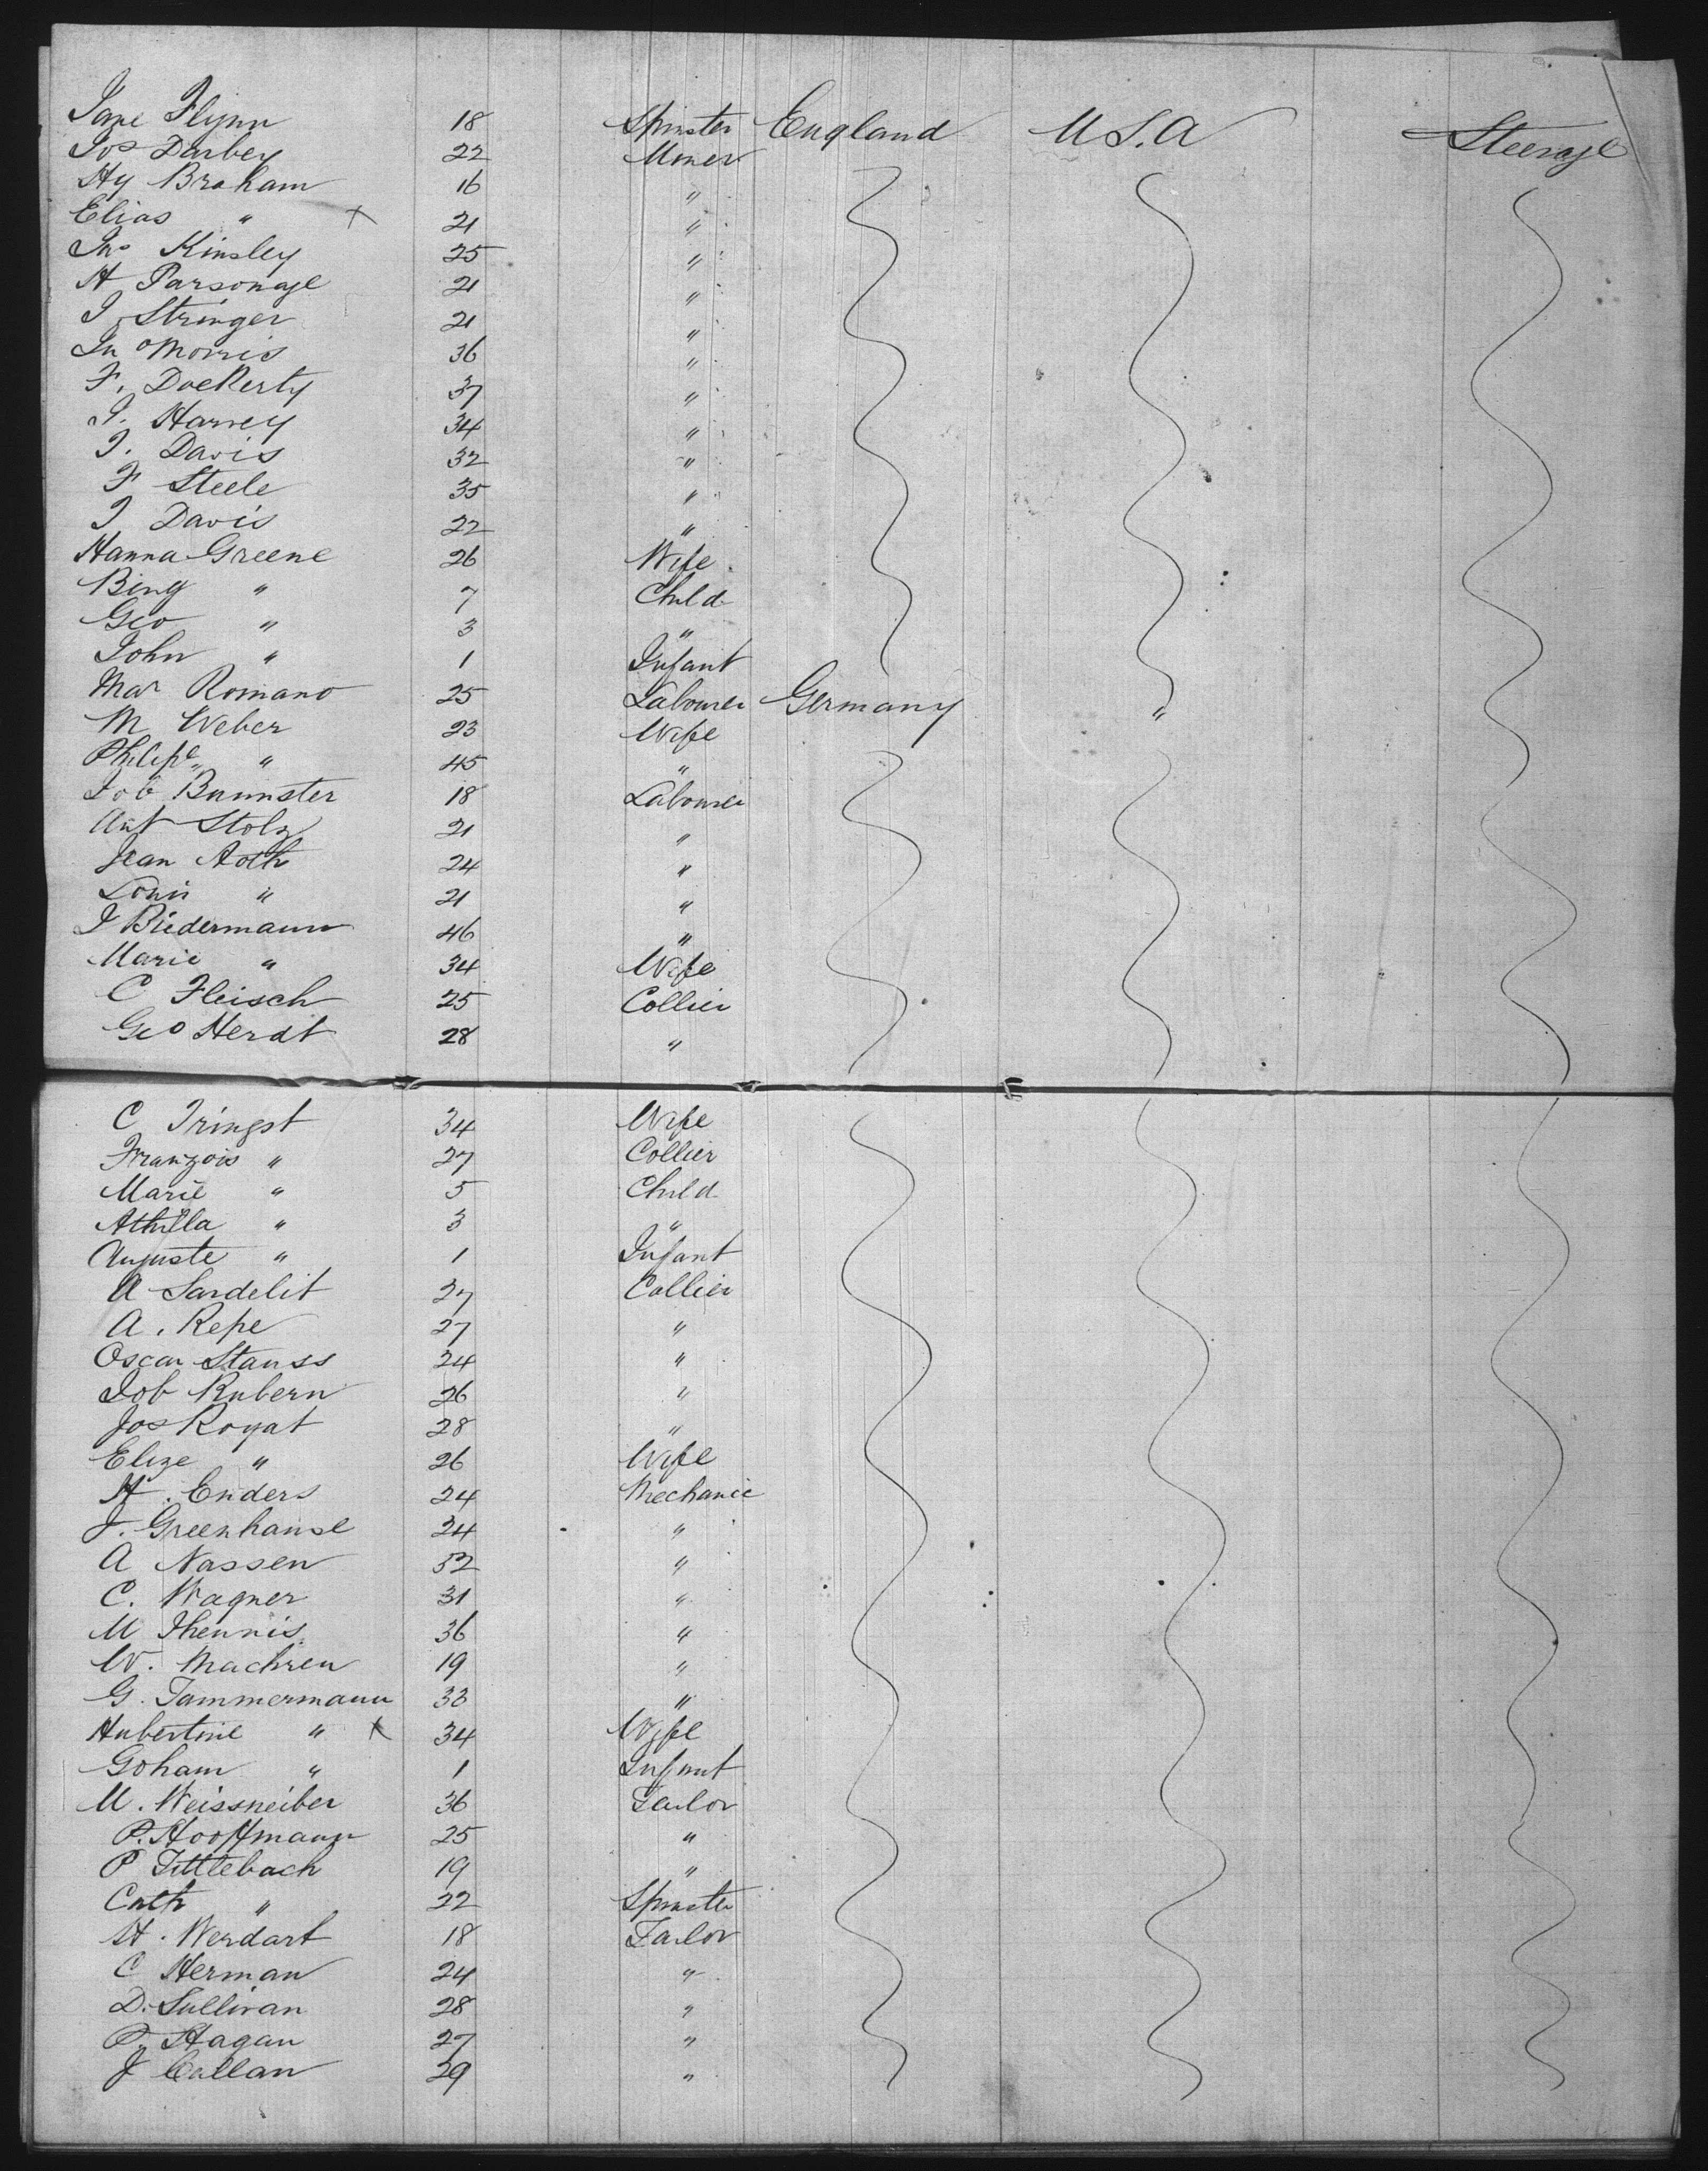 Jane Flynn 18 Spinster England U.S.A Steerage
Jos Darbey 22 Miner
Hy Braham 16 "
Elias " x 21 "
Jno Kinsley 25 "
H Parsonage 21 "
J Stringer 21 "
Jno Morris 36 "
F. Dockerty 37 "
J. Harvey 34 "
J. Davis 32 "
F Steele 35 "
J Davis 22 "
Hanna Greene 26 Wife
Bing " 7 Child
Geo " 3 "
John " 1 Infant
Mar Romano 25 Labourer Germany "
M Weber 23 Wife
" 45 "
Job Bannister 18 Labourer
Ant Stolz 21 "
Jean Roth 24 "
Louis " 21 "
J Biedermann 46 "
Marie " 34 Wife
C Fleisch 25 Collier
Geo Herdt 28 "
C Tringst 34 Wife
Franzois " 27 Collier
Marie " 5 Child
Athilla " 3 "
Auguste " 1 Infant
A Sardelit 27 Collier
A. Repe 27 "
Oscar Stauss 24 "
Job Rubern 26 "
Jos Royat 28 "
Elize " 26 Wife
H. Enders 24 Mechanic
J. Greenhause 24 "
A Nassen 32 "
C. Wagner 31 "
M Thennis 36 "
W. Machren 19 "
G. Tammermann 33 "
Hubertine " x 34 Wife
Goham " 1 Infant
M. Weissneiber 36 Tailor
P. Hooffmann 25 "
P Tittlebach 19 "
Cath " 22 Spinster
H. Werdart 18 Tailor
C Herman 24 "
D. Sullivan 28 "
P. Hagan 27 "
J Callan 29 "